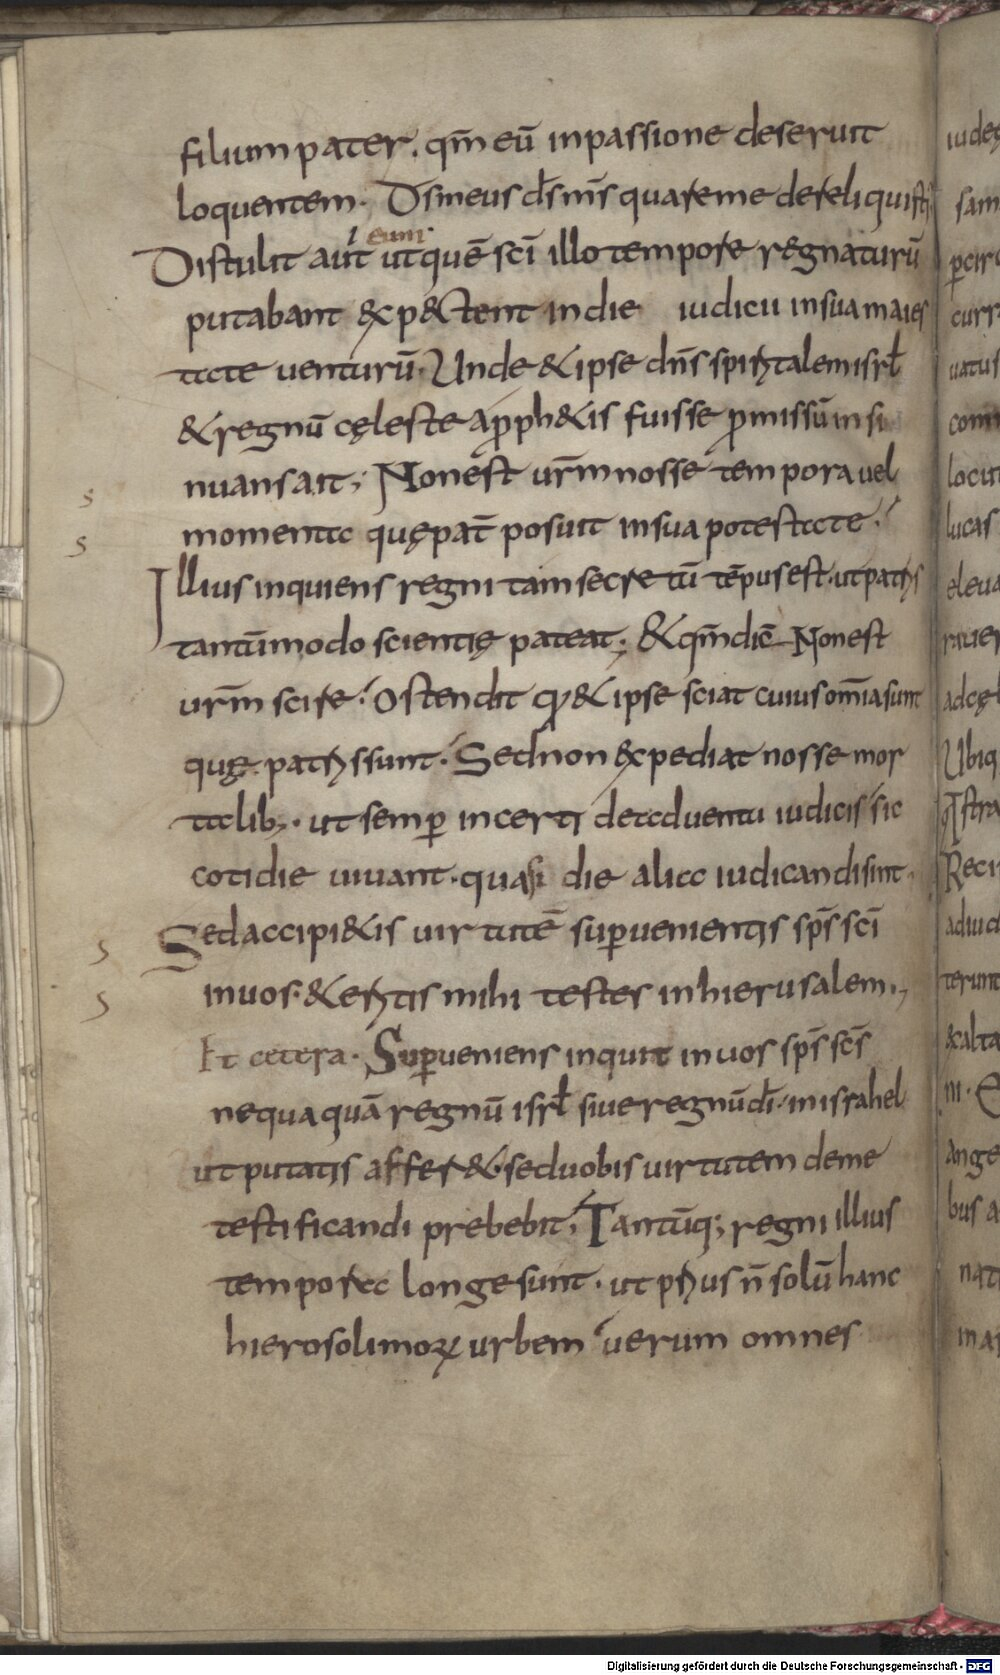 filium pater. qm̄ eū inpassione deseruit
loquentem. Ds̄meus d̄s m̄s quareme dereliquisti.
eum
Distulit aut̄ ut quē sc̄i illo tempore regnaturū
putabant &xp&tent indie iudicii insuamaies
tate venturū. Unde & ipse dn̄s spiritalem isrl̄
& regnū cęleste a pph&is fuisse pmissū insi
nuans ait; Nonest urm̄ nosse tempora uel
momenta quępat̄ posuit insua potestate.
Illius inquiens regni tam secre tū tēpus est. ut patris
tantūmodo scientię pateat; & qm̄ dic̄ Nonest
urm̄ scire. Ostendit qd & ipse sciat cuius omīa sunt
quę patris sunt. Sed non &xpediat nosse mor
talib;. ut semp incerti deaduentu iudicis sic
cotidie uiuant. quasi die alia iudicandi sint.
Sed accipi&is uirtutē supuenientis sp̄s sc̄i
inuos. & eritis mihi testes inhierusalem.,
Et cetera. Supueniens inquit inuos sp̄s sc̄s
nequaquā regnū isrl̄ siue regnū dī. inisrahel
ut putatis affer&. sed uobis uirtutem deme
testificandi prebebit; Tantūq; regni illius
tempora longe sunt. ut prius n̄ solū hanc
hierosolimoꝝ urbem uerum omnes
Digitalisierung gefördert durch die Deutsche Forschungsgemeinschaft - DFG